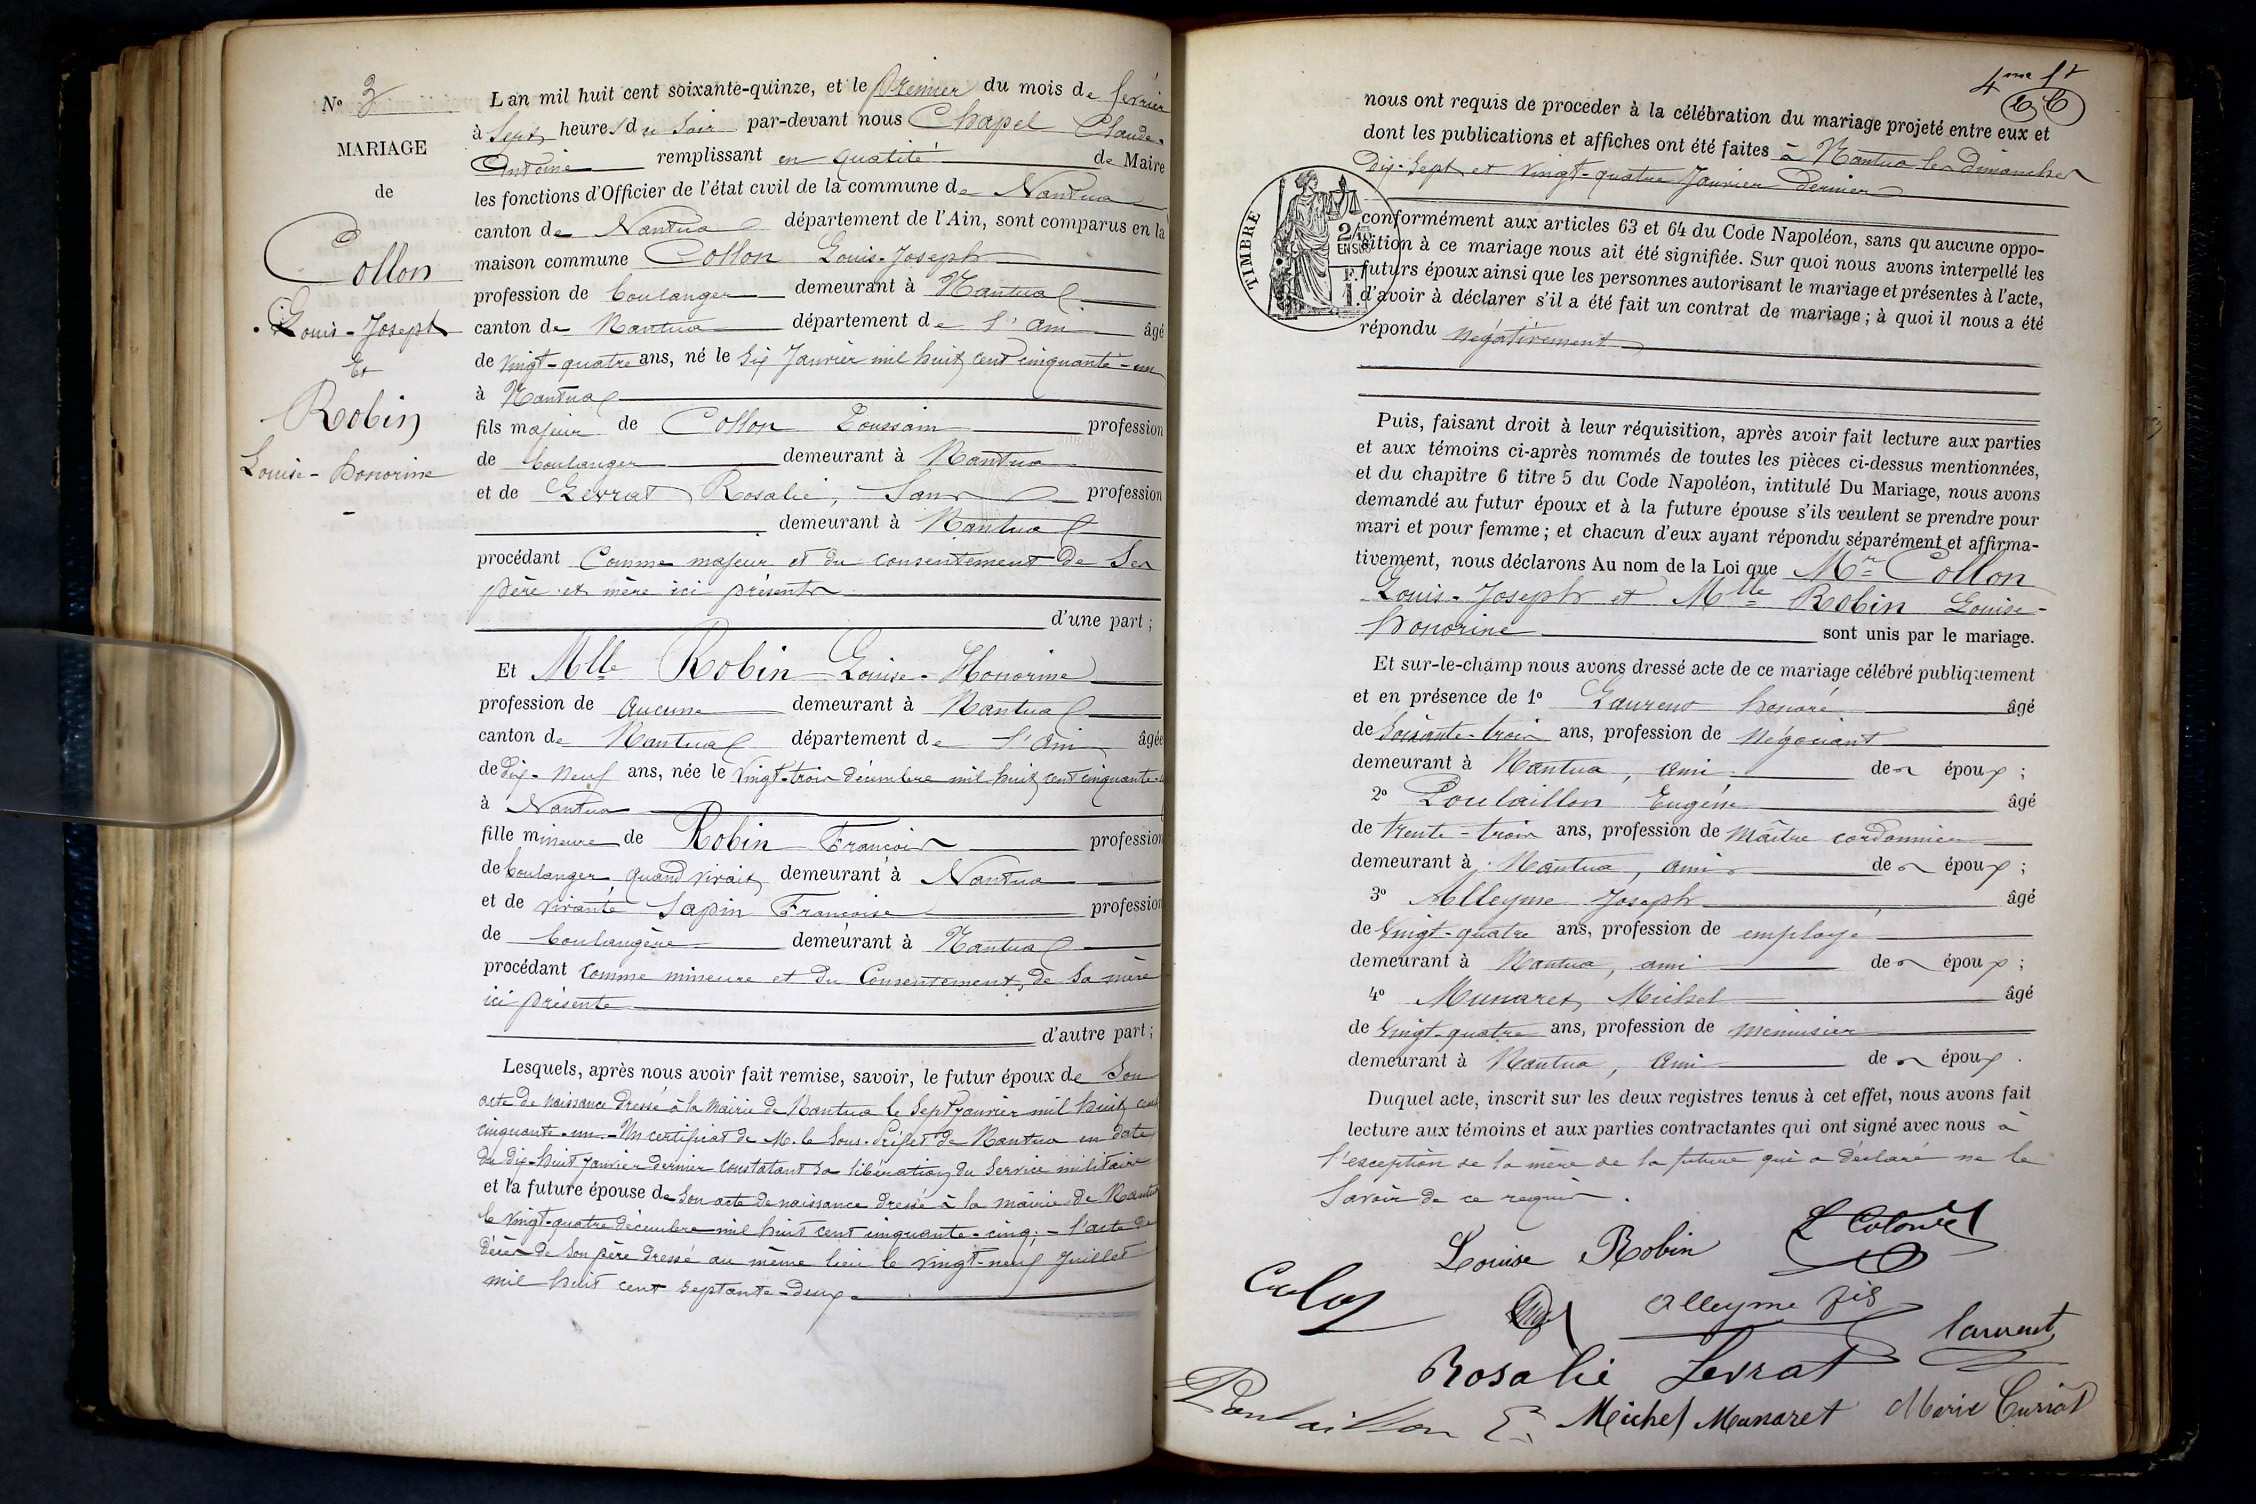 N° 3
MARIAGE
de
Collon
Louis-Joseph
Et
Robin
Louise-honorine
L'an mil huit cent soixante-quinze, et le Premier du mois de février
à Sept heures du Soir par-devant nous Chapel Claude-
Antoine remplissant en qualité de Maire
les fonctions d'Officier de l'état civil de la commune de Nantua
canton de Nantua département de l'Ain, sont comparus en la
maison commune Collon Louis-Joseph
profession de boulanger demeurant à Nantua
canton de Nantua département de l'Ain âgé
de vingt-quatre ans, né le Six Janvier mil huit cent cinquante-un
à Nantua
fils majeur de Collon Toussain profession
de boulanger demeurant à Nantua
et de Levrat Rosalie, Sans profession
demeurant à Nantua
procédant Comme majeur et du consentement de Ses
père et mère ici présents
d'une part ;
Et Mlle Robin Louise-Honorine
profession de Aucune demeurant à Nantua
canton de Nantua département de l'Ain âgée
de dix-neuf ans, née le vingt-trois décembre mil huit cent cinquante-
à Nantua
fille mineure de Robin François profession
de boulanger quand vivait demeurant à Nantua
et de vivante Sapin Françoise profession
de boulangère demeurant à Nantua
procédant comme mineure et du Consentement de Sa mère
ici présente
d'autre part ;
Lesquels, après nous avoir fait remise, savoir, le futur époux de Son
acte de naissance dressé à la Mairie de Nantua le Sept Janvier mil huit cent
cinquante-un. - Un certificat de M. le Sous-Préfet de Nantua en date
du dix-huit Janvier dernier constatant sa libération du Service militaire
et la future épouse de Son acte de naissance dressé à la mairie de Nantua
le vingt-quatre décembre mil huit cent cinquante-cinq ; - l'acte de
décès de Son père dressé au même lieu le vingt-neuf Juillet
mil huit cent septante-deux.
4me ft
nous ont requis de procéder à la célébration du mariage projeté entre eux et
dont les publications et affiches ont été faites à Nantua les dimanches
dix-Sept et vingt-quatre Janvier dernier
TIMBRE
conformément aux articles 63 et 64 du Code Napoléon, sans qu'aucune oppo-
sition à ce mariage nous ait été signifiée. Sur quoi nous avons interpellé les
futurs époux ainsi que les personnes autorisant le mariage et présentes à l'acte,
d'avoir à déclarer s'il a été fait un contrat de mariage ; à quoi il nous a été
répondu négativement
2/10
EN SUS
F.
1.
Puis, faisant droit à leur réquisition, après avoir fait lecture aux parties
et aux témoins ci-après nommés de toutes les pièces ci-dessus mentionnées,
et du chapitre 6 titre 5 du Code Napoléon, intitulé Du Mariage, nous avons
demandé au futur époux et à la future épouse s'ils veulent se prendre pour
mari et pour femme ; et chacun d'eux ayant répondu séparément et affirma-
tivement, nous déclarons Au nom de la Loi que Mr Collon
Louis-Joseph et Mlle Robin Louise-
honorine sont unis par le mariage.
Et sur-le-champ nous avons dressé acte de ce mariage célébré publiquement
et en présence de 1° Laurent honoré âgé
de Soixante-trois ans, profession de négociant
demeurant à Nantua, ami des époux ;
2° Poulaillon Eugène âgé
de trente-trois ans, profession de Maître cordonnier
demeurant à Nantua, ami des époux ;
3° Alleyme Joseph âgé
de vingt-quatre ans, profession de employé
demeurant à Nantua, ami des époux ;
4° Munaret Michel âgé
de vingt-quatre ans, profession de menuisier
demeurant à Nantua, ami des époux.
Duquel acte, inscrit sur les deux registres tenus à cet effet, nous avons fait
lecture aux témoins et aux parties contractantes qui ont signé avec nous à
l'exception de la mère de la future qui a déclaré ne le
Savoir de ce requis.
Louise Robin
Alleyme fils
laurent
Rosalie Levrat
Poulaillon E.
Michel Munaret
Marie